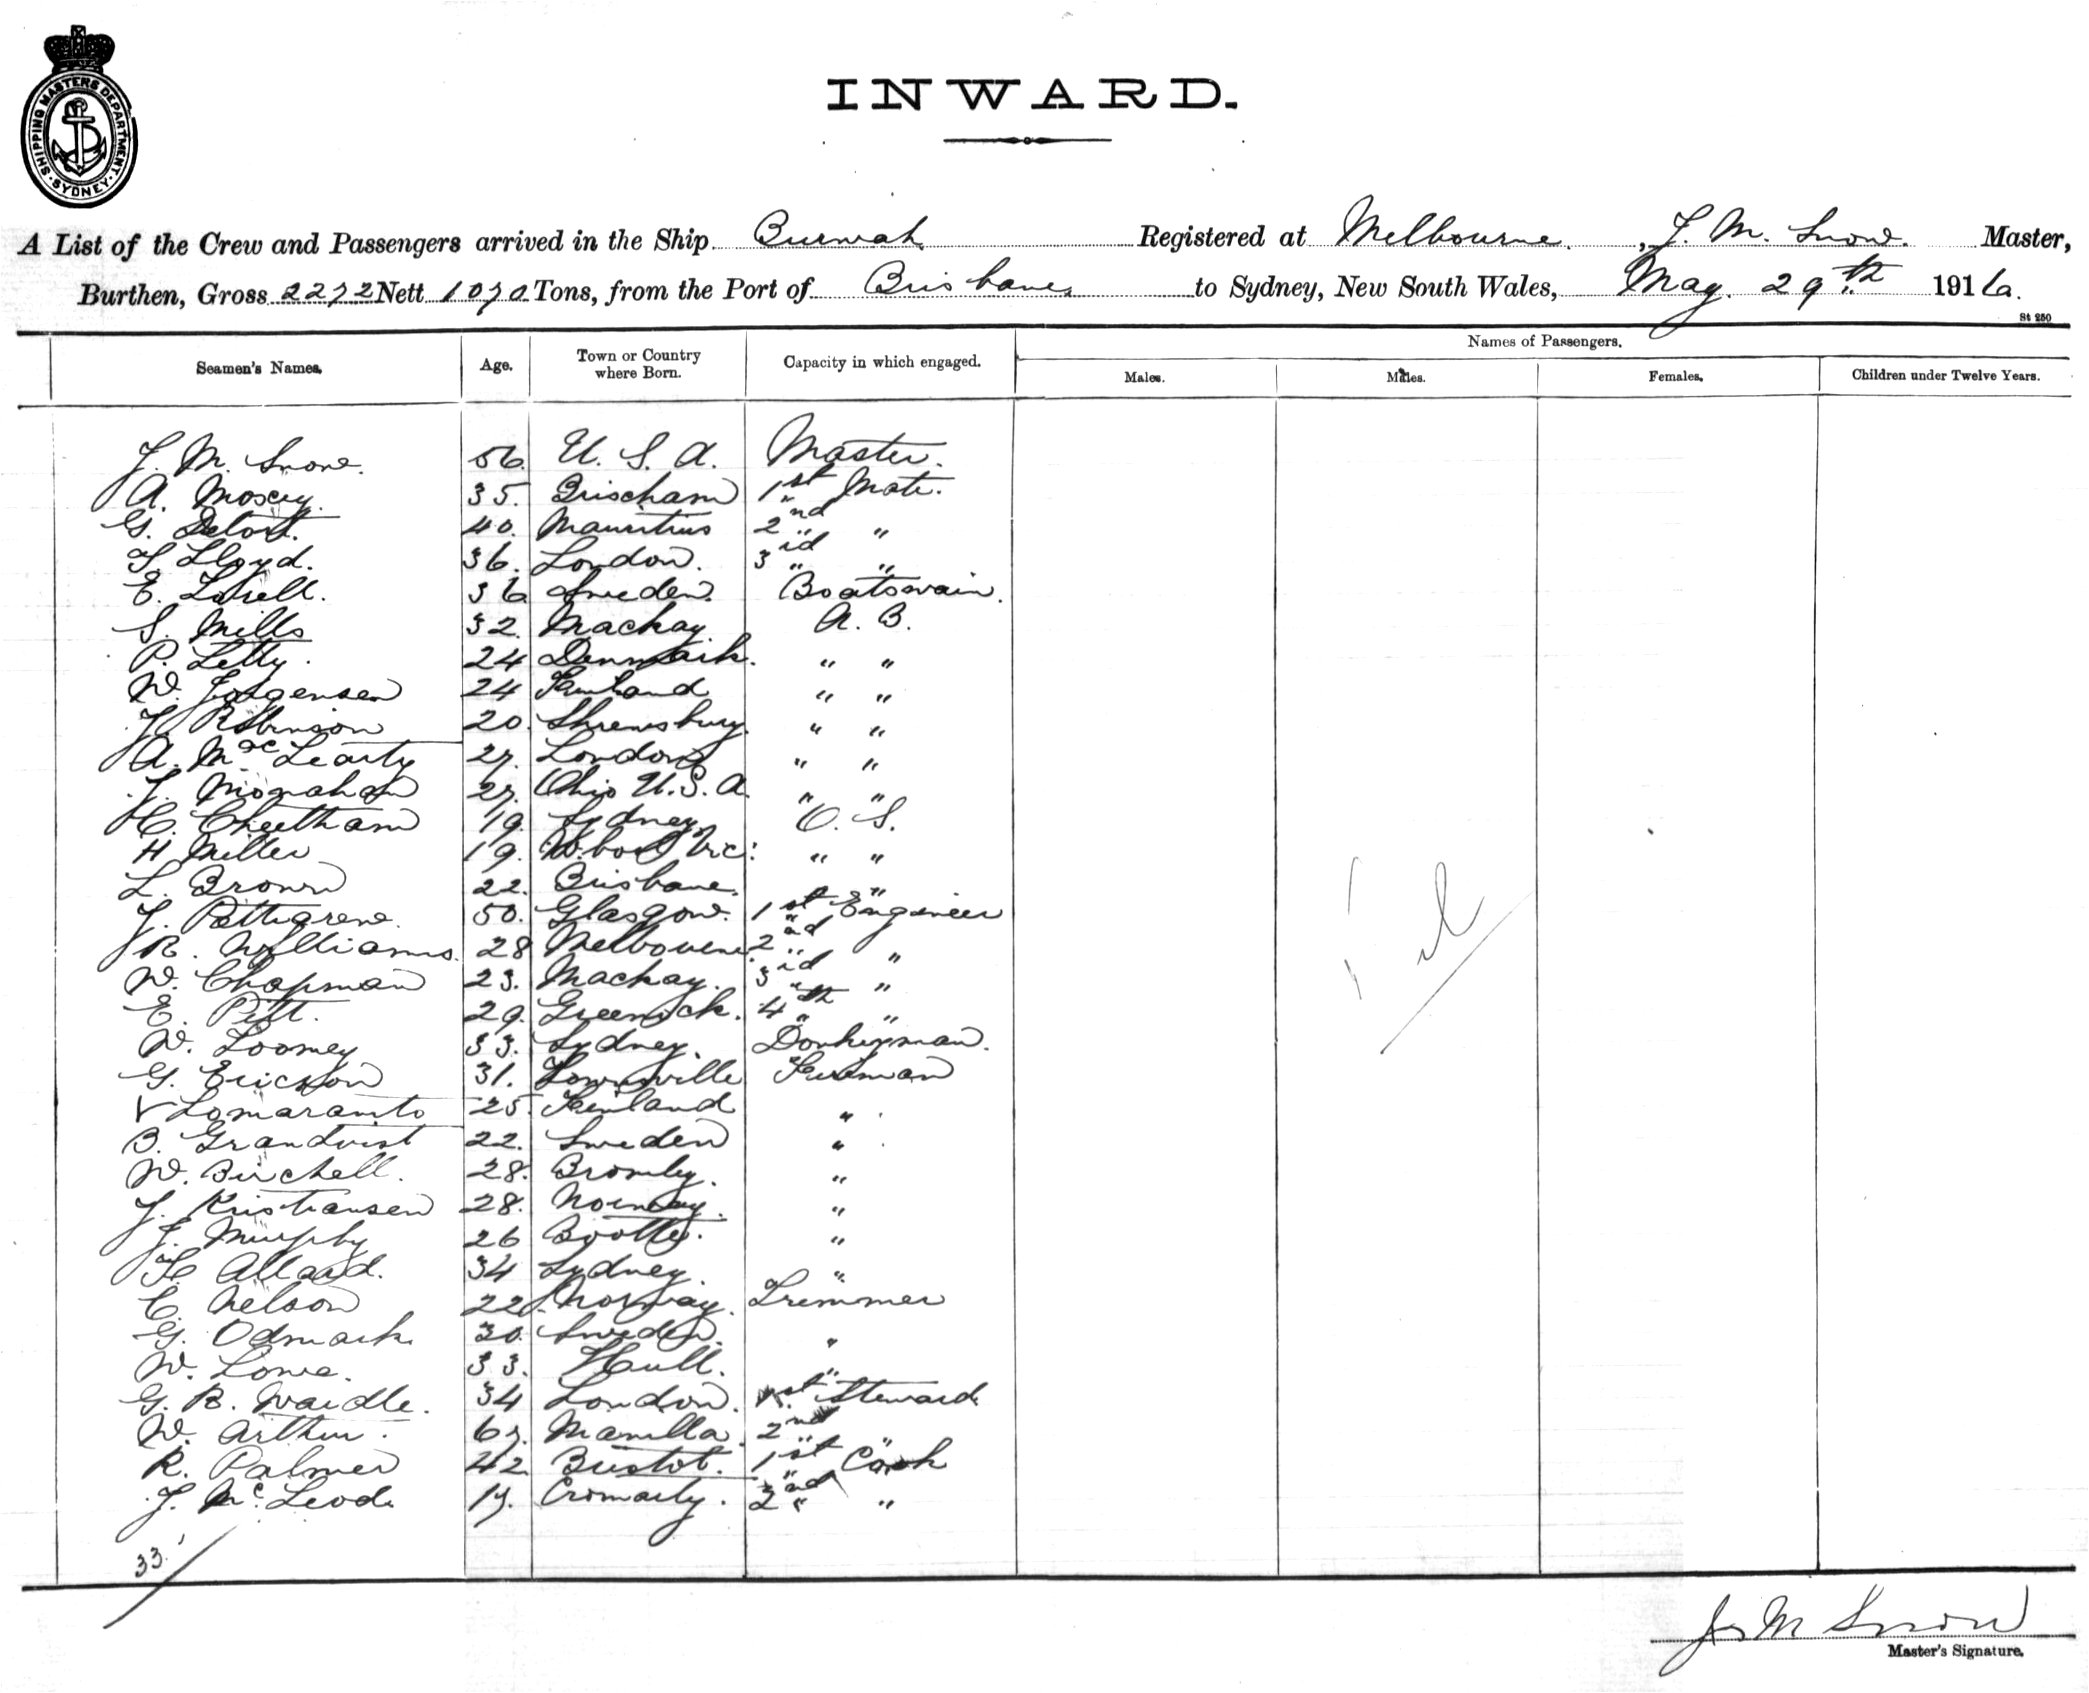 SHIPPING MASTERS DEPARTMENT · SYDNEY ·
INWARD.
A List of the Crew and Passengers arrived in the Ship Burwah Registered at Melbourne, J. M. Snow. Master,
Burthen, Gross 2272 Nett 1070 Tons, from the Port of Brisbane to Sydney, New South Wales, May. 29th 1916.
St 250
Seamen's Names. Age. Town or Country where Born. Capacity in which engaged. Names of Passengers.
Males. Males. Females. Children under Twelve Years.
J. M. Snow. 56. U. S. A. Master.
A. Moscey. 35. Brixcham 1st Mate.
G. 40. Mauritius 2nd "
T. Lloyd. 36. London. 3rd "
E. 36 Sweden. Boatswain.
S. Mills 32. Mackay. A. B.
P. Letty. 24 Denmark. " "
W. Jorgensen 24 Finland " "
J. Robinson 20. Shrewsbury. " "
A. MacLearty 27. London " "
J. Monahan 27. Ohio U.S.A. " "
C. Cheetham 19. Sydney O. S.
H Miller 19. W.bool Vic: " "
L. Brown 22. Brisbane. "
J. Pettigrew. 50. Glasgow. 1st Engineer
R. Williams. 28 Melbourne. 2nd "
W. Chapman 23. Mackay. 3rd "
E. Pitt. 29. Greenock. 4th "
W. Toomey 33. Sydney. Donkeyman.
G. Erickson 31. Townsville Fireman
V 25. Finland "
B. Grandvist 22. Sweden "
W. Birchell. 28. Bromley. "
J. Kristiansen 28. Norway. "
J. Murphy 26 Bootle. "
H. Allard. 34 Sydney. "
C. Nelson 22. Norway. Trimmer
G. Odmark. 30. Sweden. "
W. Lowe. 33. Hull. "
G. R. Wardle. 34 London. 1st Steward.
W. Arthur. 67. Manilla. 2nd "
R. Palmer 42. Bristol. 1st Cook
J. McLeod. 17. Cromarty. 2nd "
33.
J. M Snow
Master's Signature.